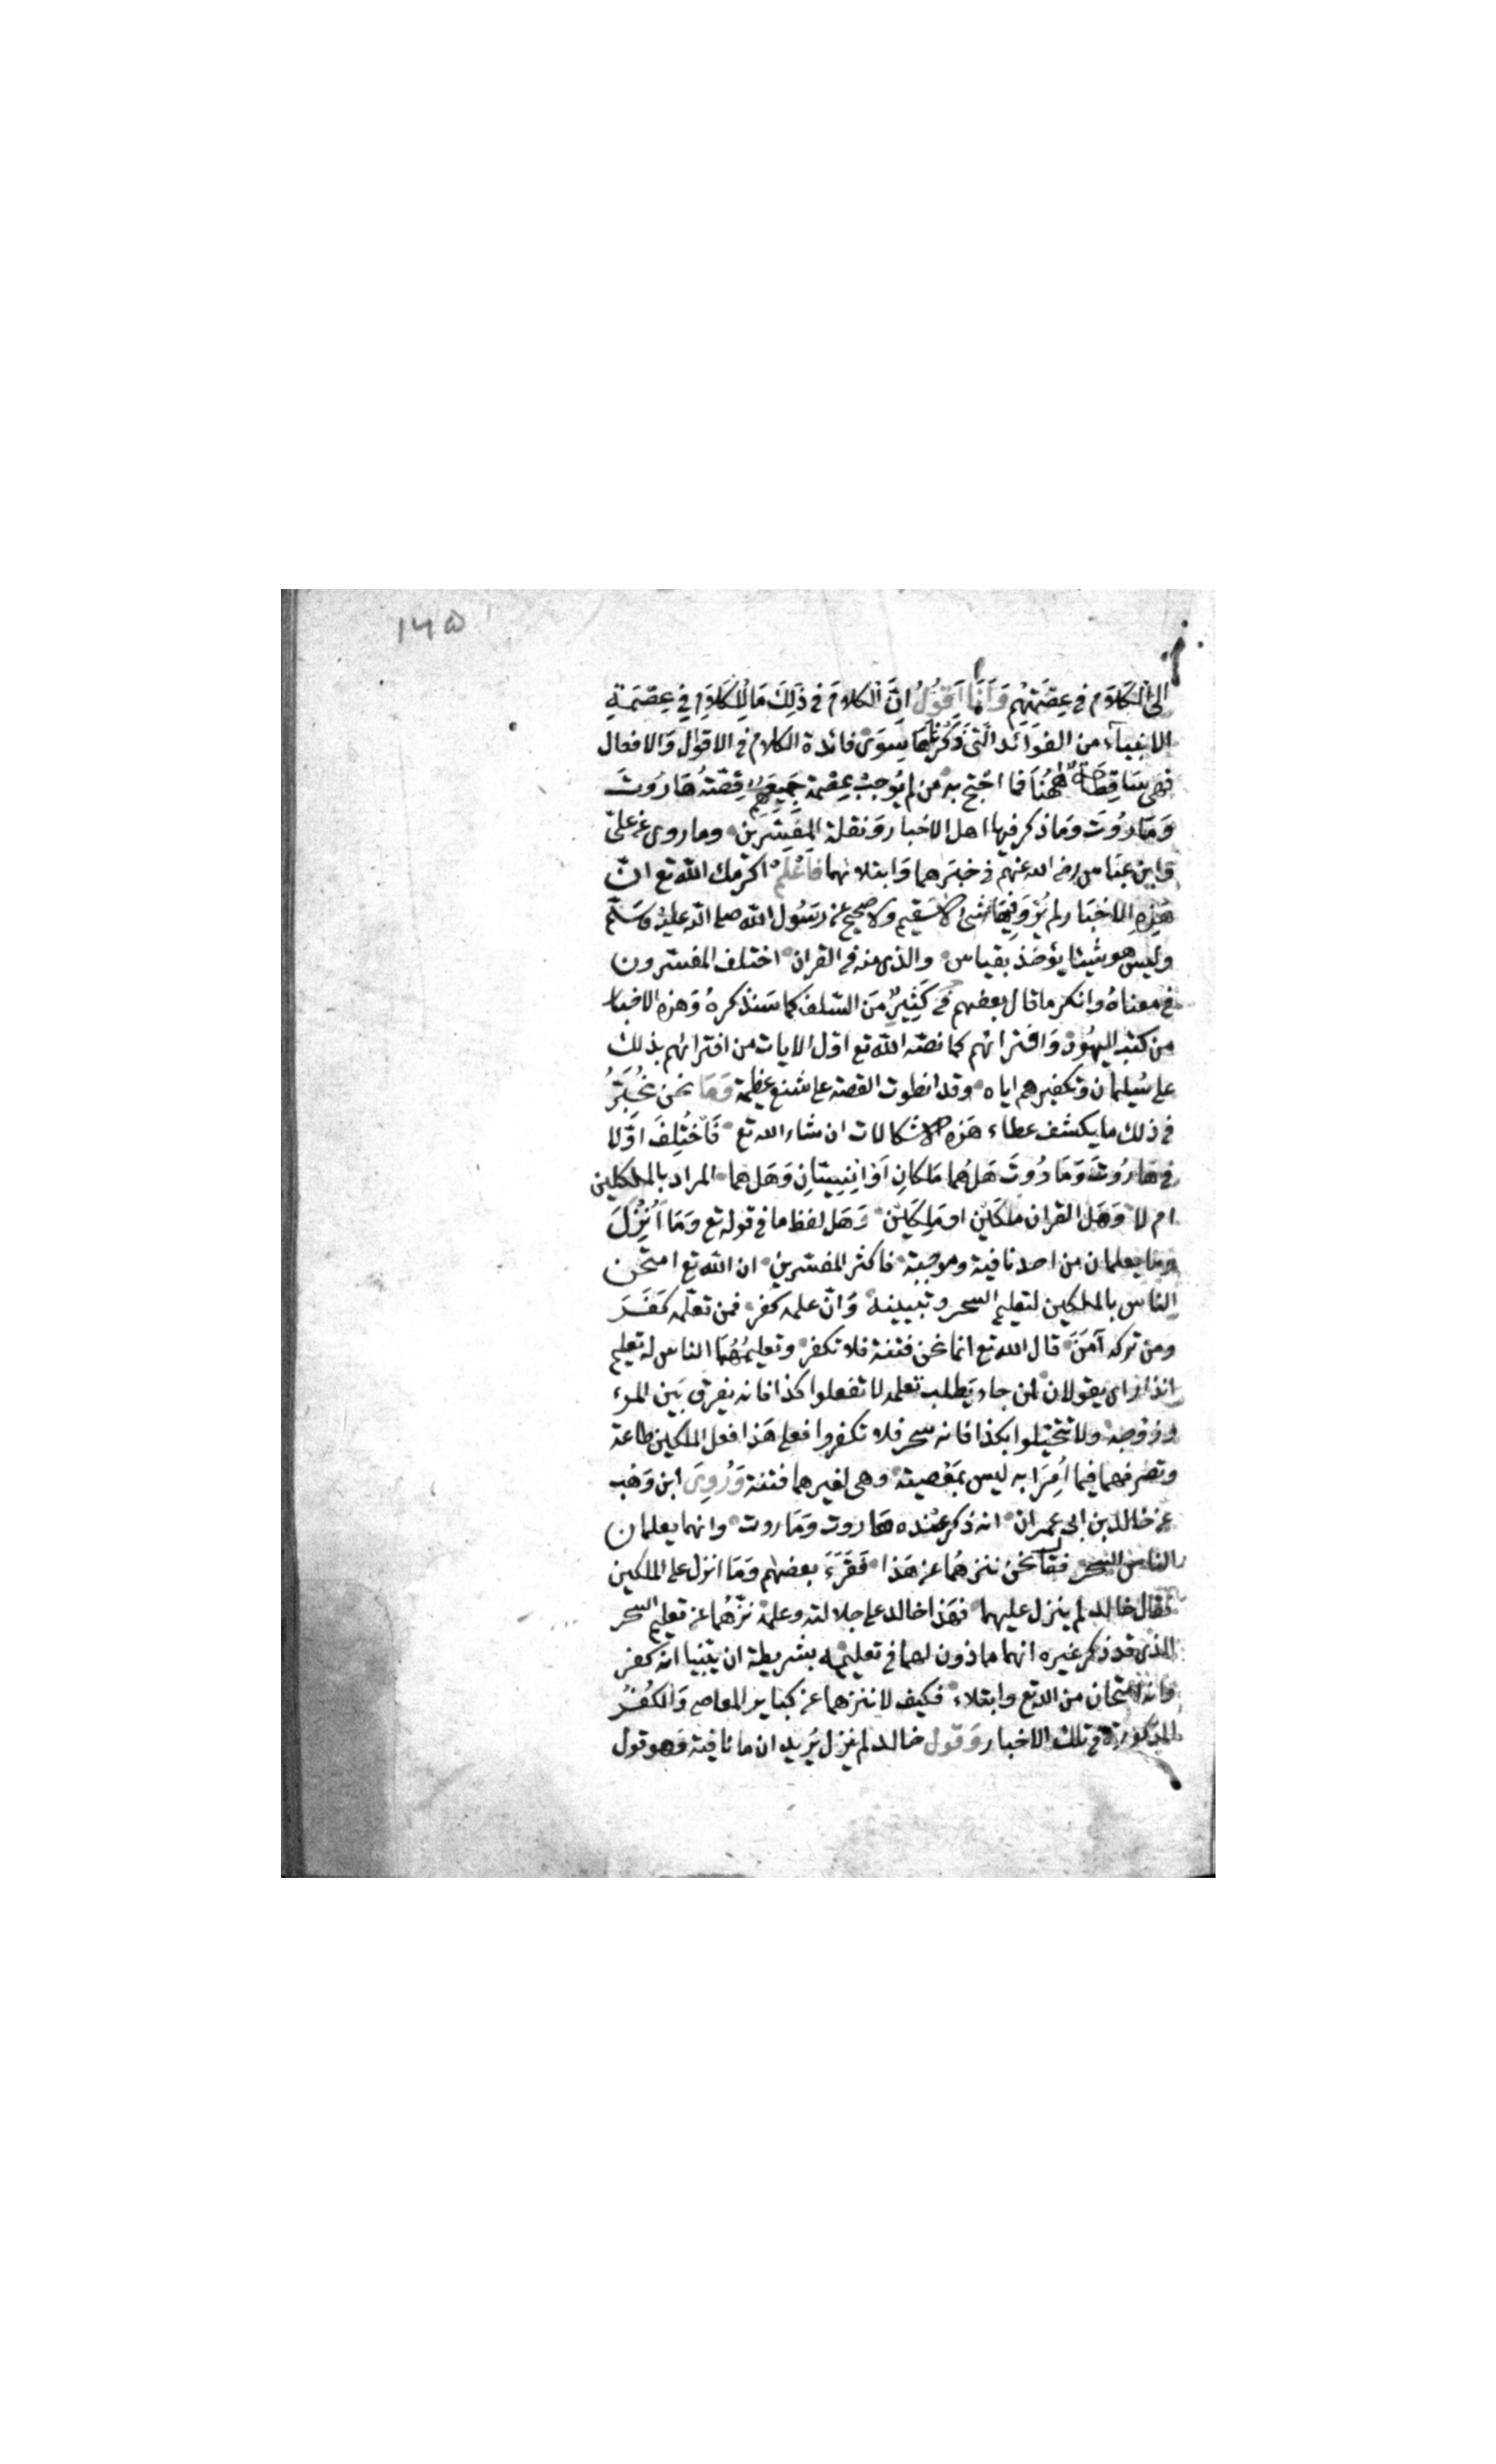 ١٦٥
الى الكلام في عصمتهم وَاَنَا اَقُولُ انَّ الكلامَ في ذَلِكَ مَا لِلكَلَامِ في عِصْمَةِ
الانبياء من الفوَائد الّتى ذَكَرْنَاهَا سِوَى فائدة الكلام في الاقوال وَالافعال
فهى سَاقِطَةٌ هٰهُنَا فما احْتجّ به من لم يُوجبْ عِصْمة جَمِيعِهِم قِصّتُهُ هَارُوتَ
وَمَارُوتَ وَمَا ذكر فيها اهل الاخبار وَنقلة المفَسِّرِين وما روى عن علىّ
وَابن عبّاس رضى الله عنهم في خبَرهما وَابتلائهما فَاعْلَمْ اكرمك اللّه تع انّ
هٰذِهِ الاخبَار لم يُرْوَ فِيهَا شئ لا سَقيم ولا صحيح عن رسَوُل اللّه صلى اللّه عليْه وَسَلّم
وليس هو شيئا يؤخذ بقياس والذى منه في القران اختلف المفسّرون
في معناهُ وانكر ما قال بعضهم فيَ كَثِيرٌ منَ السّلف كما سَنذكرهُ وَهٰذه الاخبار
من كتب اليهُود وَافترائهم كما نصّه اللّه تع اوّل الايات من افترائهم بذلك
على سُليمان وتكفيرهم اياه وقد انطوت القصة على شنع عظيمة وَهَا نحن نُخبَرُ
في ذلك ما يكشف عطاء هَذه الاشكالات ان شاء اللّه تع فَاَخْتُلِفَ اوّلا
في هَارُوتَ وَمَارُوتَ هَل هُما مَلكانِ اَوْ اِنِسِيّانِ وَهَل هما المراد بالملكين
ام لا وَهَل القران ملَكَين او مَلِكَيْن وَهَل لفظ ما في قوله تع وَمَا اُنْزِلَ
وما يعلمان من احد نافية وموجبة فاكثر المفسّرين ان اللّه تع امتحن
الناس بالملكين لتعليم السحر وتبيينه وَانّ علمه كفر فمن تعلّمه كَفَرَ
ومن تركه آمَنَ قال اللّه تع انما نحن فتنة فلا تكفر وتعليمُهُمَا الناس له تعليم
انذار اى يقولان لمن جاء يَطلب تعلمه لا تفعلوا كذا فانه يفرق بَين المرء
وزوجه ولا تتخيّلوا بكذا فانه سحر فلا تكفروا فعلى هَذا فعل الملكين طاعة
وتصرفهما فيما اُمِرَا به ليس بمَعْصية وهى لغيرهما فتنة وَرُوِىَ ابن وَهْب
عن خالد بن ابى عمران انه ذكر عنْده هَاروت وَمَاروت وانهما يعلمان
الناس السحر فقال نحن ننزهُما عن هَذا فَقَرَءَ بعضهم وَمَا انزل على الملكين
فقال خالد لم ينزل عليهما فهَذا خالد على جلالته وعلمه نزّهُما عن تعليم السحر
الذى قد ذكر غيره انهما ماذون لهما في تعليمه بشريطة ان يبيّنا انه كفر
وانه امتحان من اللّه تع وابتلاء فكيف لا ننزهما عن كبائر المعاصى وَالكُفْرِ
المذكورة في تلك الاخبار وَقول خالد لم ينزل يُريد ان ما نافية وَهو قول